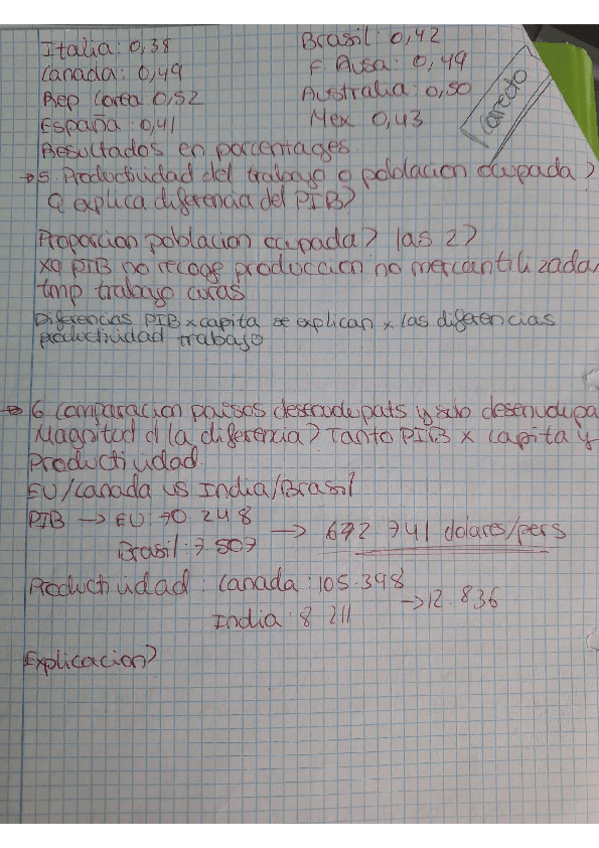 Italia: 0,38
Brasil: 0,42
Canada: 0,49
F Ausa: 0,49
Rep Corea 0,52
Australia: 0,50
España: 0,41
Mex 0,43
Correcto
Resultados en porcentages.
→ 5. Productividad del trabajo o poblacion ocupada?
Q explica diferencia del PIB?
Proporcion poblacion ocupada? las 2?
xq PIB no recoge produccion no mercantilizada,
tmp trabajo curas.
Diferencias PIB x capita se explican x las diferencias
productividad trabajo
→ 6 Comparacion paisos desenvolupats y sub desenvolupa
Magnitud d la diferencia? Tanto PIB x capita y
Productividad.
EU/Canada vs India/Brasil
PIB → EU: 70.248
→ 672 741 dolares/pers
Brasil: 7.507
Productividad: Canada: 105.398
→ 12.836
India: 8 211
Explicacion?